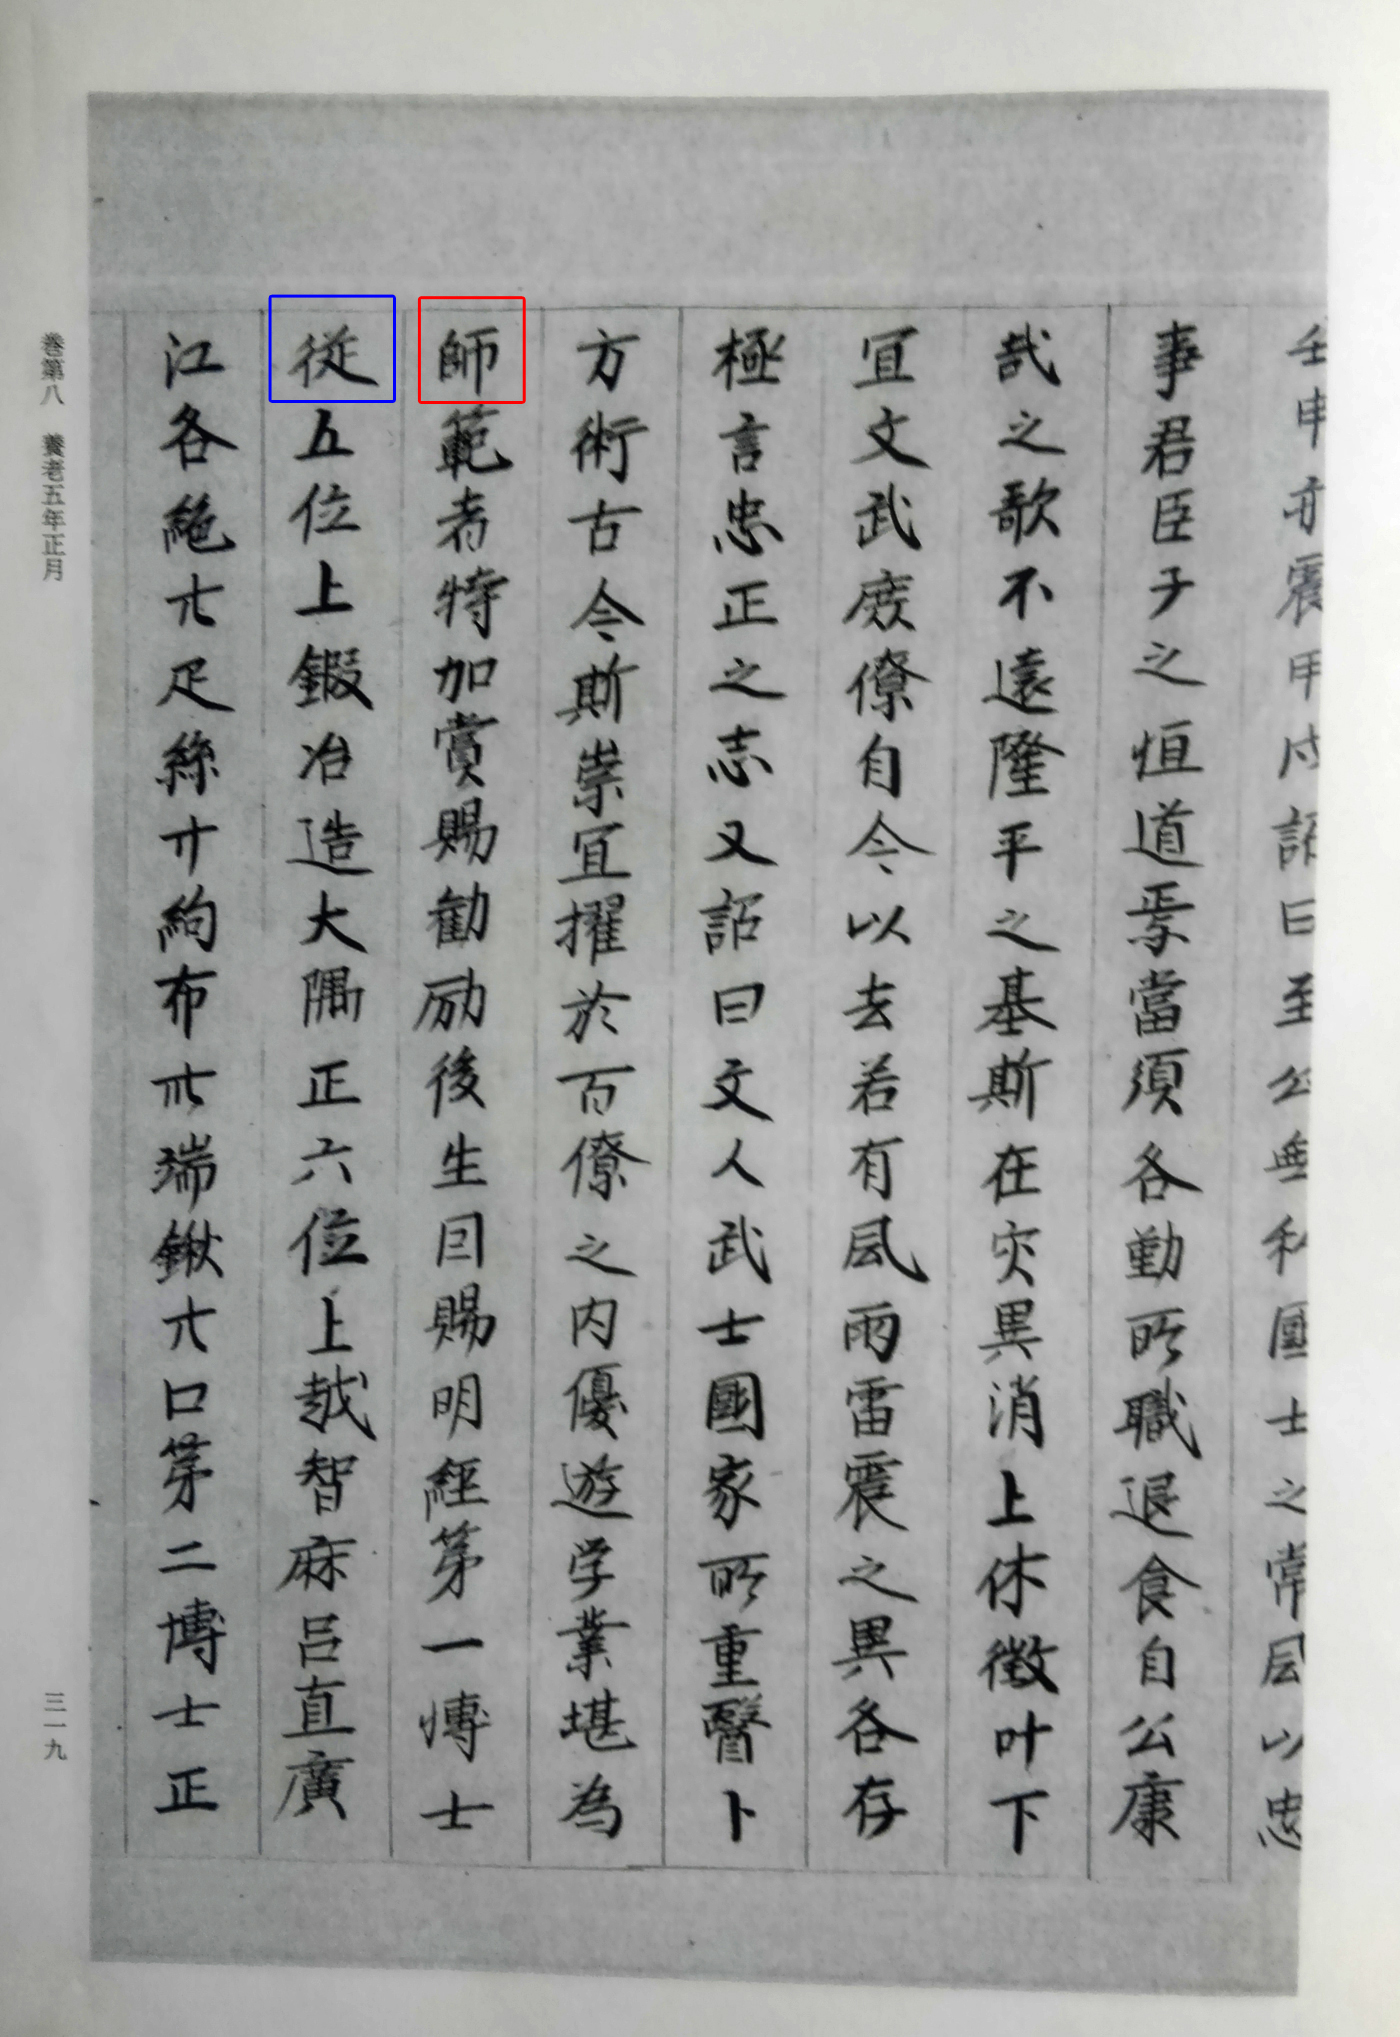 壬申亦震甲戌詔曰至公無私國士之常風以忠
事君臣子之恒道焉當須各勤所職退食自公康
哉之歌不遠隆平之基斯在灾異消上休徴叶下
冝文武庻僚自今以去若有風雨雷震之異各存
極言忠正之志又詔曰文人武士國家所重醫卜
方術古今斯崇冝擢於百僚之内優遊学業堪為
師範者特加賞賜勧励後生囙賜明經第一博士
從五位上鍛冶造大隅正六位上越智麻呂直廣
江各絁廿疋絲廿絇布卅端鍬廿口第二博士正
巻第八 養老五年正月
三一九